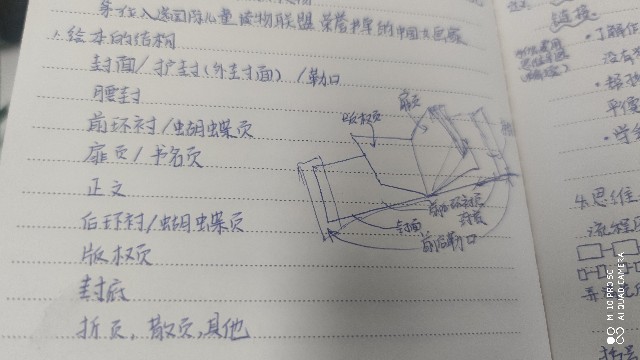 入选国际儿童读物联盟荣誉书单的中国女画家
2.绘本的结构
封面/护封(外封面)/勒口
腰封
前环衬/蝴蝶页
扉页/书名页
正文
后环衬/蝴蝶页
版权页
封底
折页、散页、其他
版权页
扉页
前后环衬页
封底
封面
前后勒口
链接
了解作
没有
学
思维
流程
MI 10 PRO 5G
AI QUAD CAMERA